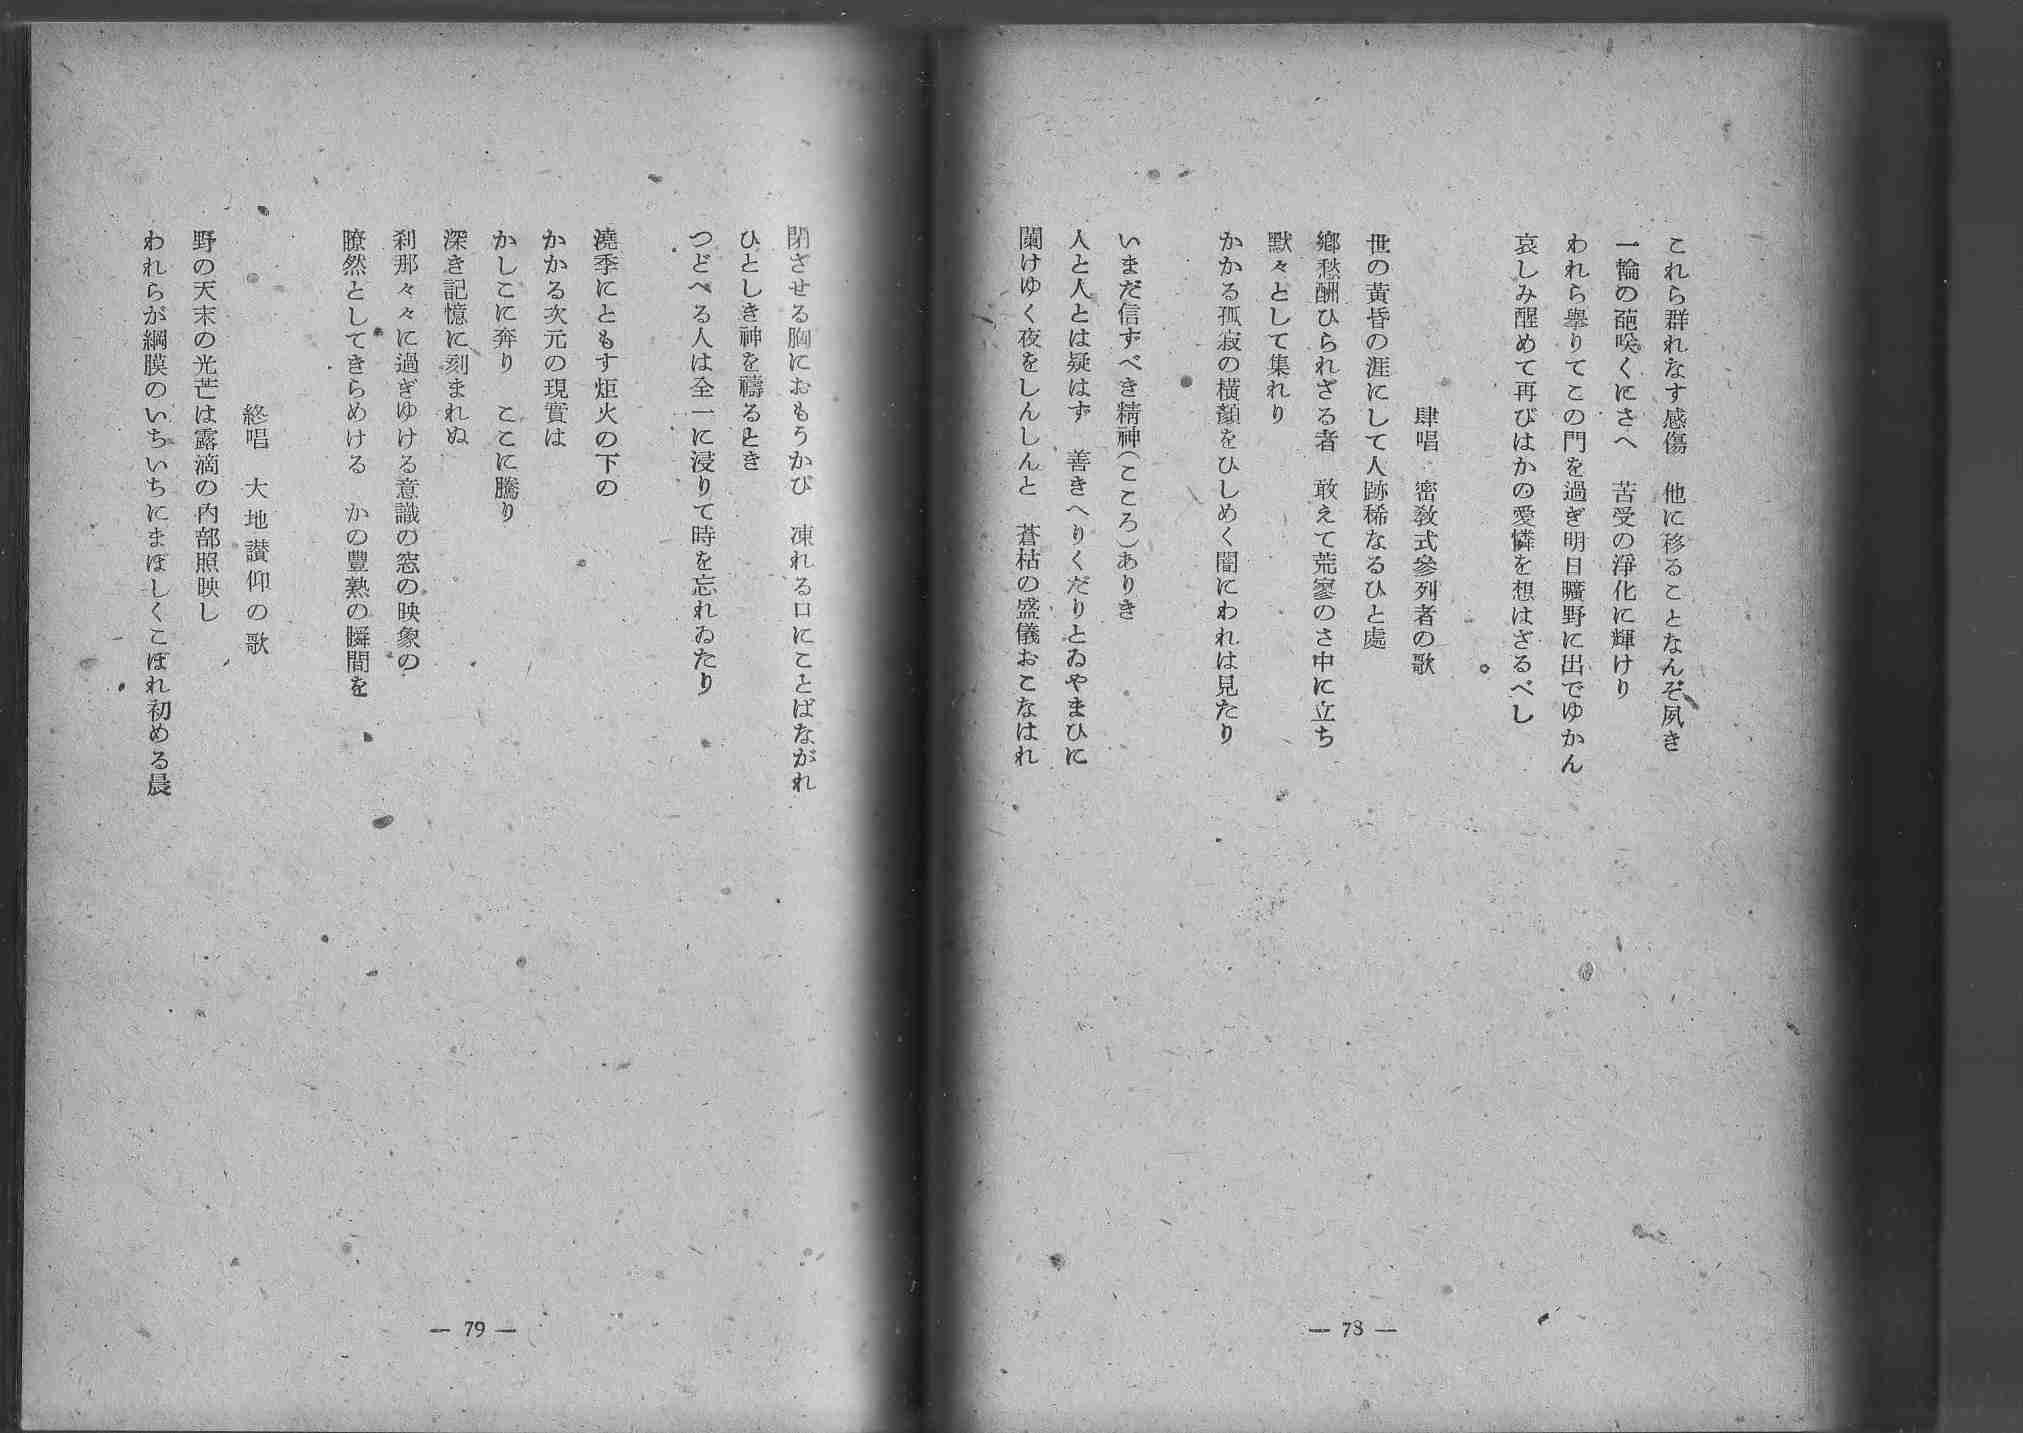 これら群れなす感傷　他に移ることなんぞ夙き
一輪の葩咲くにさへ　苦受の淨化に輝けり
われら擧りてこの門を過ぎ明日曠野に出でゆかん
哀しみ醒めて再びはかの愛憐を想はざるべし
肆唱　密敎式參列者の歌
世の黃昏の涯にして人跡稀なるひと處
鄕愁酬ひられざる者　敢えて荒寥のさ中に立ち
默々として集れり
かかる孤寂の橫顏をひしめく闇にわれは見たり
いまだ信ずべき精神（こころ）ありき
人と人とは疑はず　善きへりくだりとゐやまひに
闌けゆく夜をしんしんと　蒼枯の盛儀おこなはれ
— 78 —
閉ざせる胸におもうかび　凍れる口にことばながれ
ひとしき神を禱るとき
つどへる人は全一に浸りて時を忘れゐたり
澆季にともす炬火の下の
かかる次元の現實は
かしこに奔り　ここに騰り
深き記憶に刻まれぬ
刹那々々に過ぎゆける意識の窓の映象の
瞭然としてきらめける　かの豐熟の瞬間を
終唱　大地讃仰の歌
野の天末の光芒は露滴の內部照映し
われらが綱膜のいちいちにまぼしくこぼれ初める晨
— 79 —